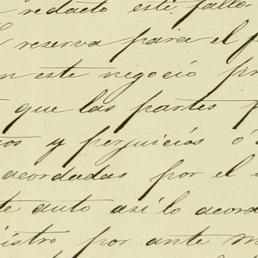 redactó este fallo
reserva para el f
en este negocio pr
que las partes p
os y perjuicios ó
acordadas por el
te auto así lo acord
istro por ante m